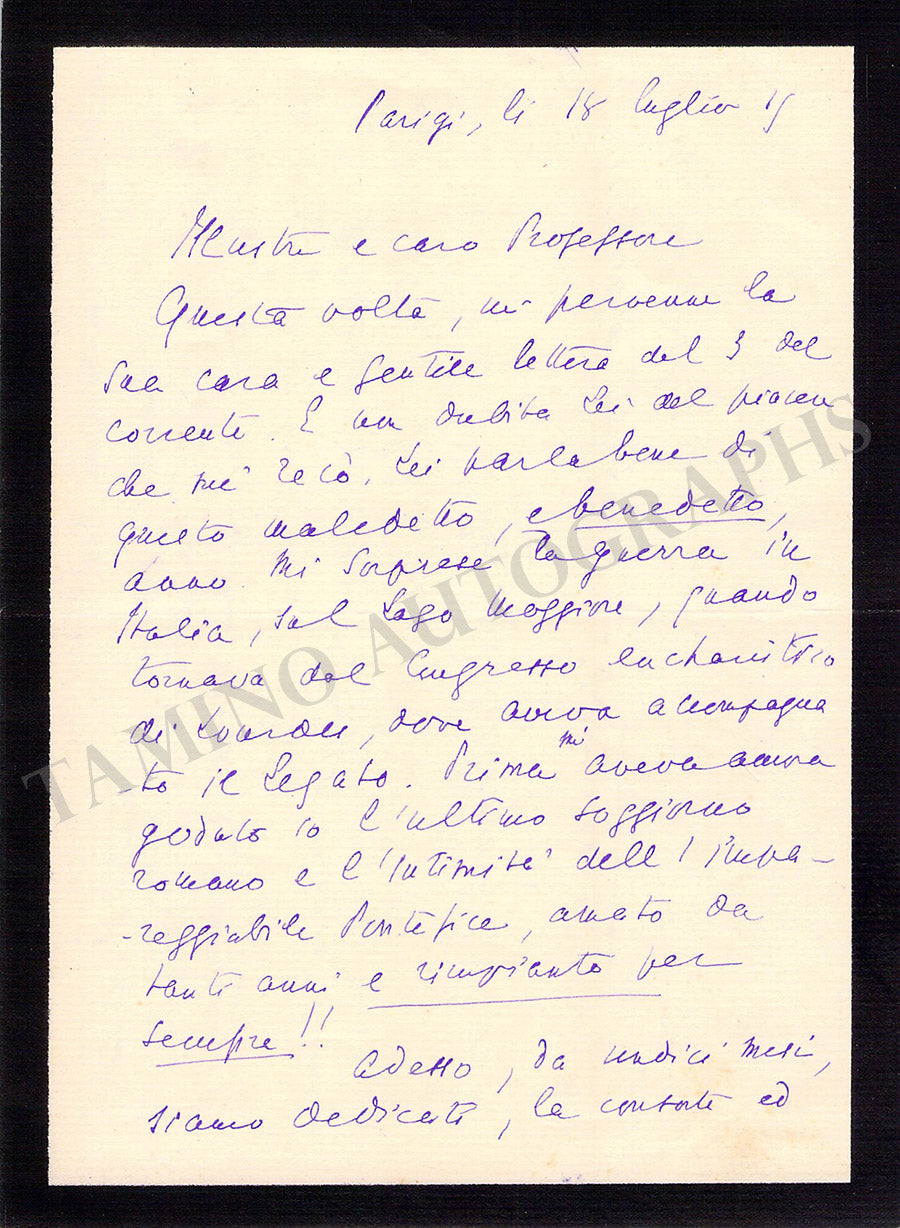 Parigi, li 18 luglio 15
Illustre e caro Professore
Questa volta, mi pervenne la
sua cara e gentile lettera del 3 del
corrente. E non dubita Lei del piacere
che me recò. Lei parla bene di
questo maledetto, e benedetto,
anno. Mi sorprese la guerra in
Italia, sul Lago Maggiore, quando
tornava dal Congresso eucharistico
di Lourdes, dove aveva accompagna
to il Legato. Prima mi aveva ancora
goduto io l'ultimo soggiorno
romano e l'intimità dell'impa-
-reggiabile Pontefice, amato da
tanti anni e rimpianto per
sempre!!
Adesso, da undici mesi,
siamo dedicati, la consorte ed
TAMINO AUTOGRAPHS